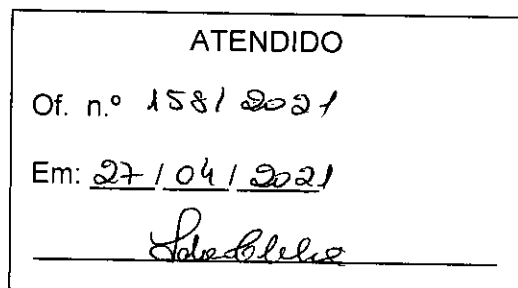 ATENDIDO
Of. n.º 158/2021
Em: 27/04/2021